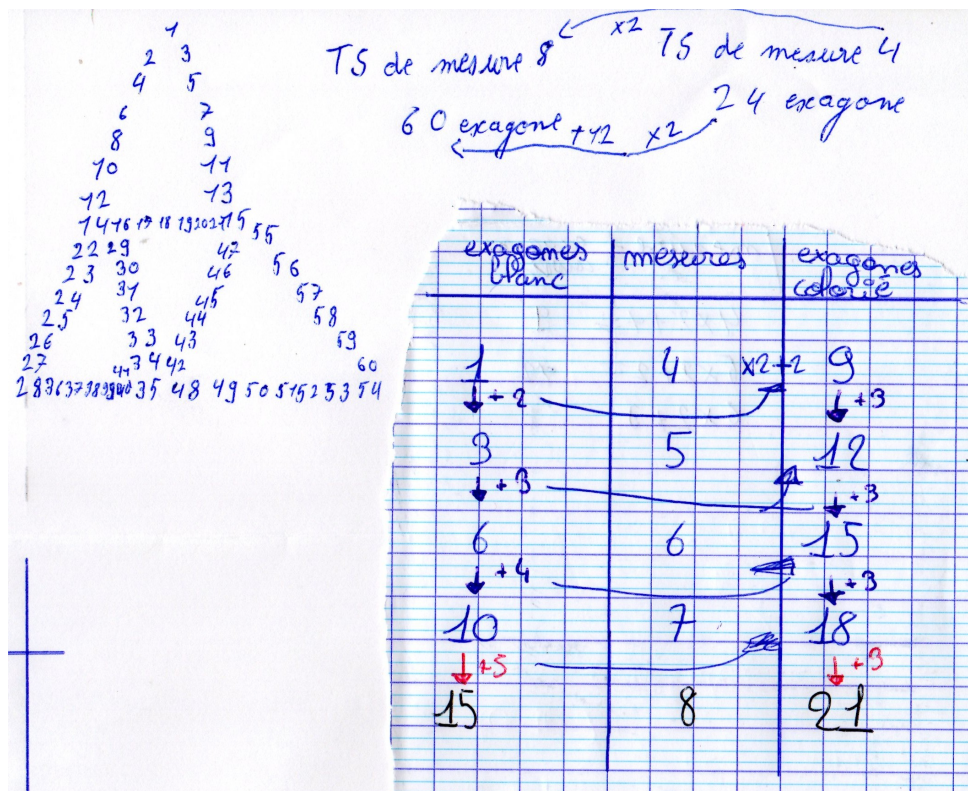 1
2 3
4 5
6 7
8 9
10 11
12 13
14 16 17 18 19 20 21 15 55
22 29 47 56
23 30 46 57
24 31 45 58
25 32 44 59
26 33 43
27 41 34 42 60
28 36 37 38 39 40 35 48 49 50 51 52 53 54
TS de mesure 8 x2 TS de mesure 4
60 exagone +12 x2 24 exagone
exagones blanc mesures exagones colorié
1 4 x2+2 9
+2 +3
3 5 12
+3 +3
6 6 15
+4 +3
10 7 18
+5 +3
15 8 21